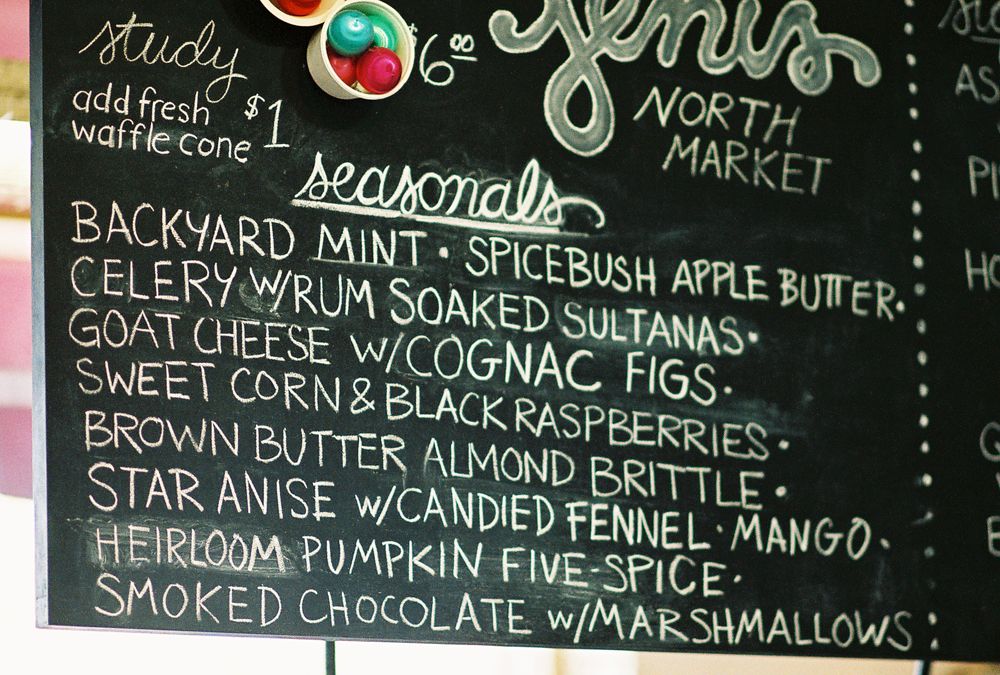 study
add fresh $1
waffle cone
$6.00
Jenis
NORTH
MARKET
seasonals
BACKYARD MINT · SPICEBUSH APPLE BUTTER ·
CELERY W/RUM SOAKED SULTANAS ·
GOAT CHEESE W/COGNAC FIGS ·
SWEET CORN & BLACK RASPBERRIES ·
BROWN BUTTER ALMOND BRITTLE ·
STAR ANISE W/CANDIED FENNEL · MANGO ·
HEIRLOOM PUMPKIN FIVE-SPICE ·
SMOKED CHOCOLATE W/MARSHMALLOWS